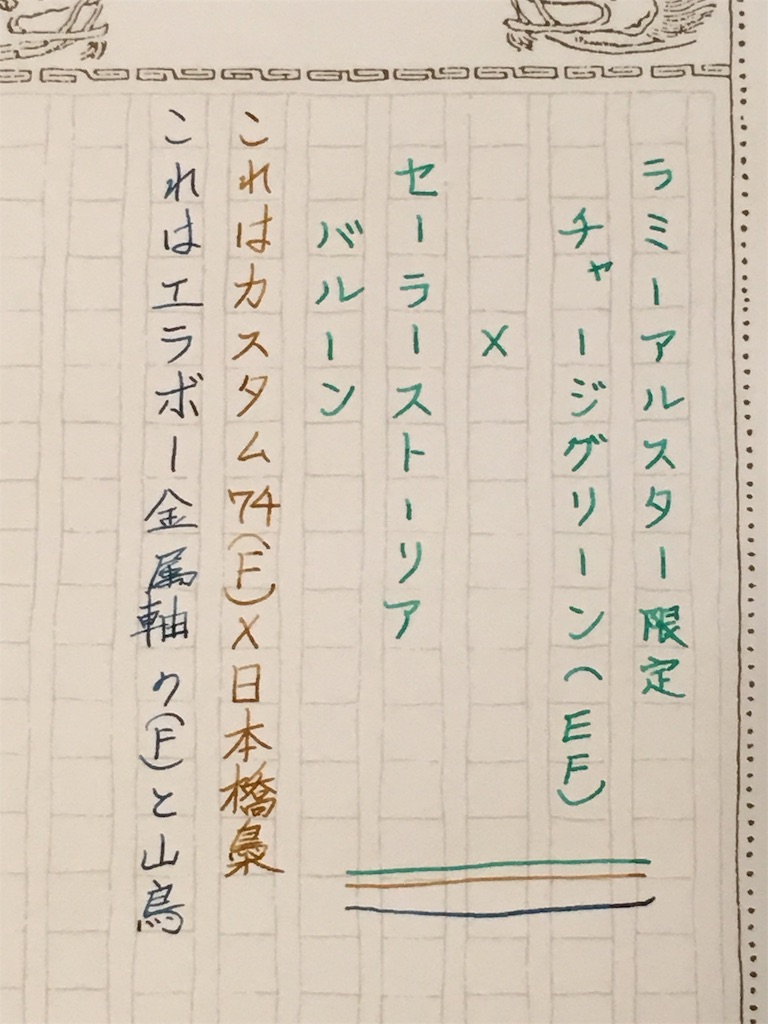 ラミーアルスター限定
チャージグリーン(EF)
×
セーラーストーリア
バルーン
これはカスタム74(F)×日本橋梟
これはエラボー金属軸の(F)と山鳥